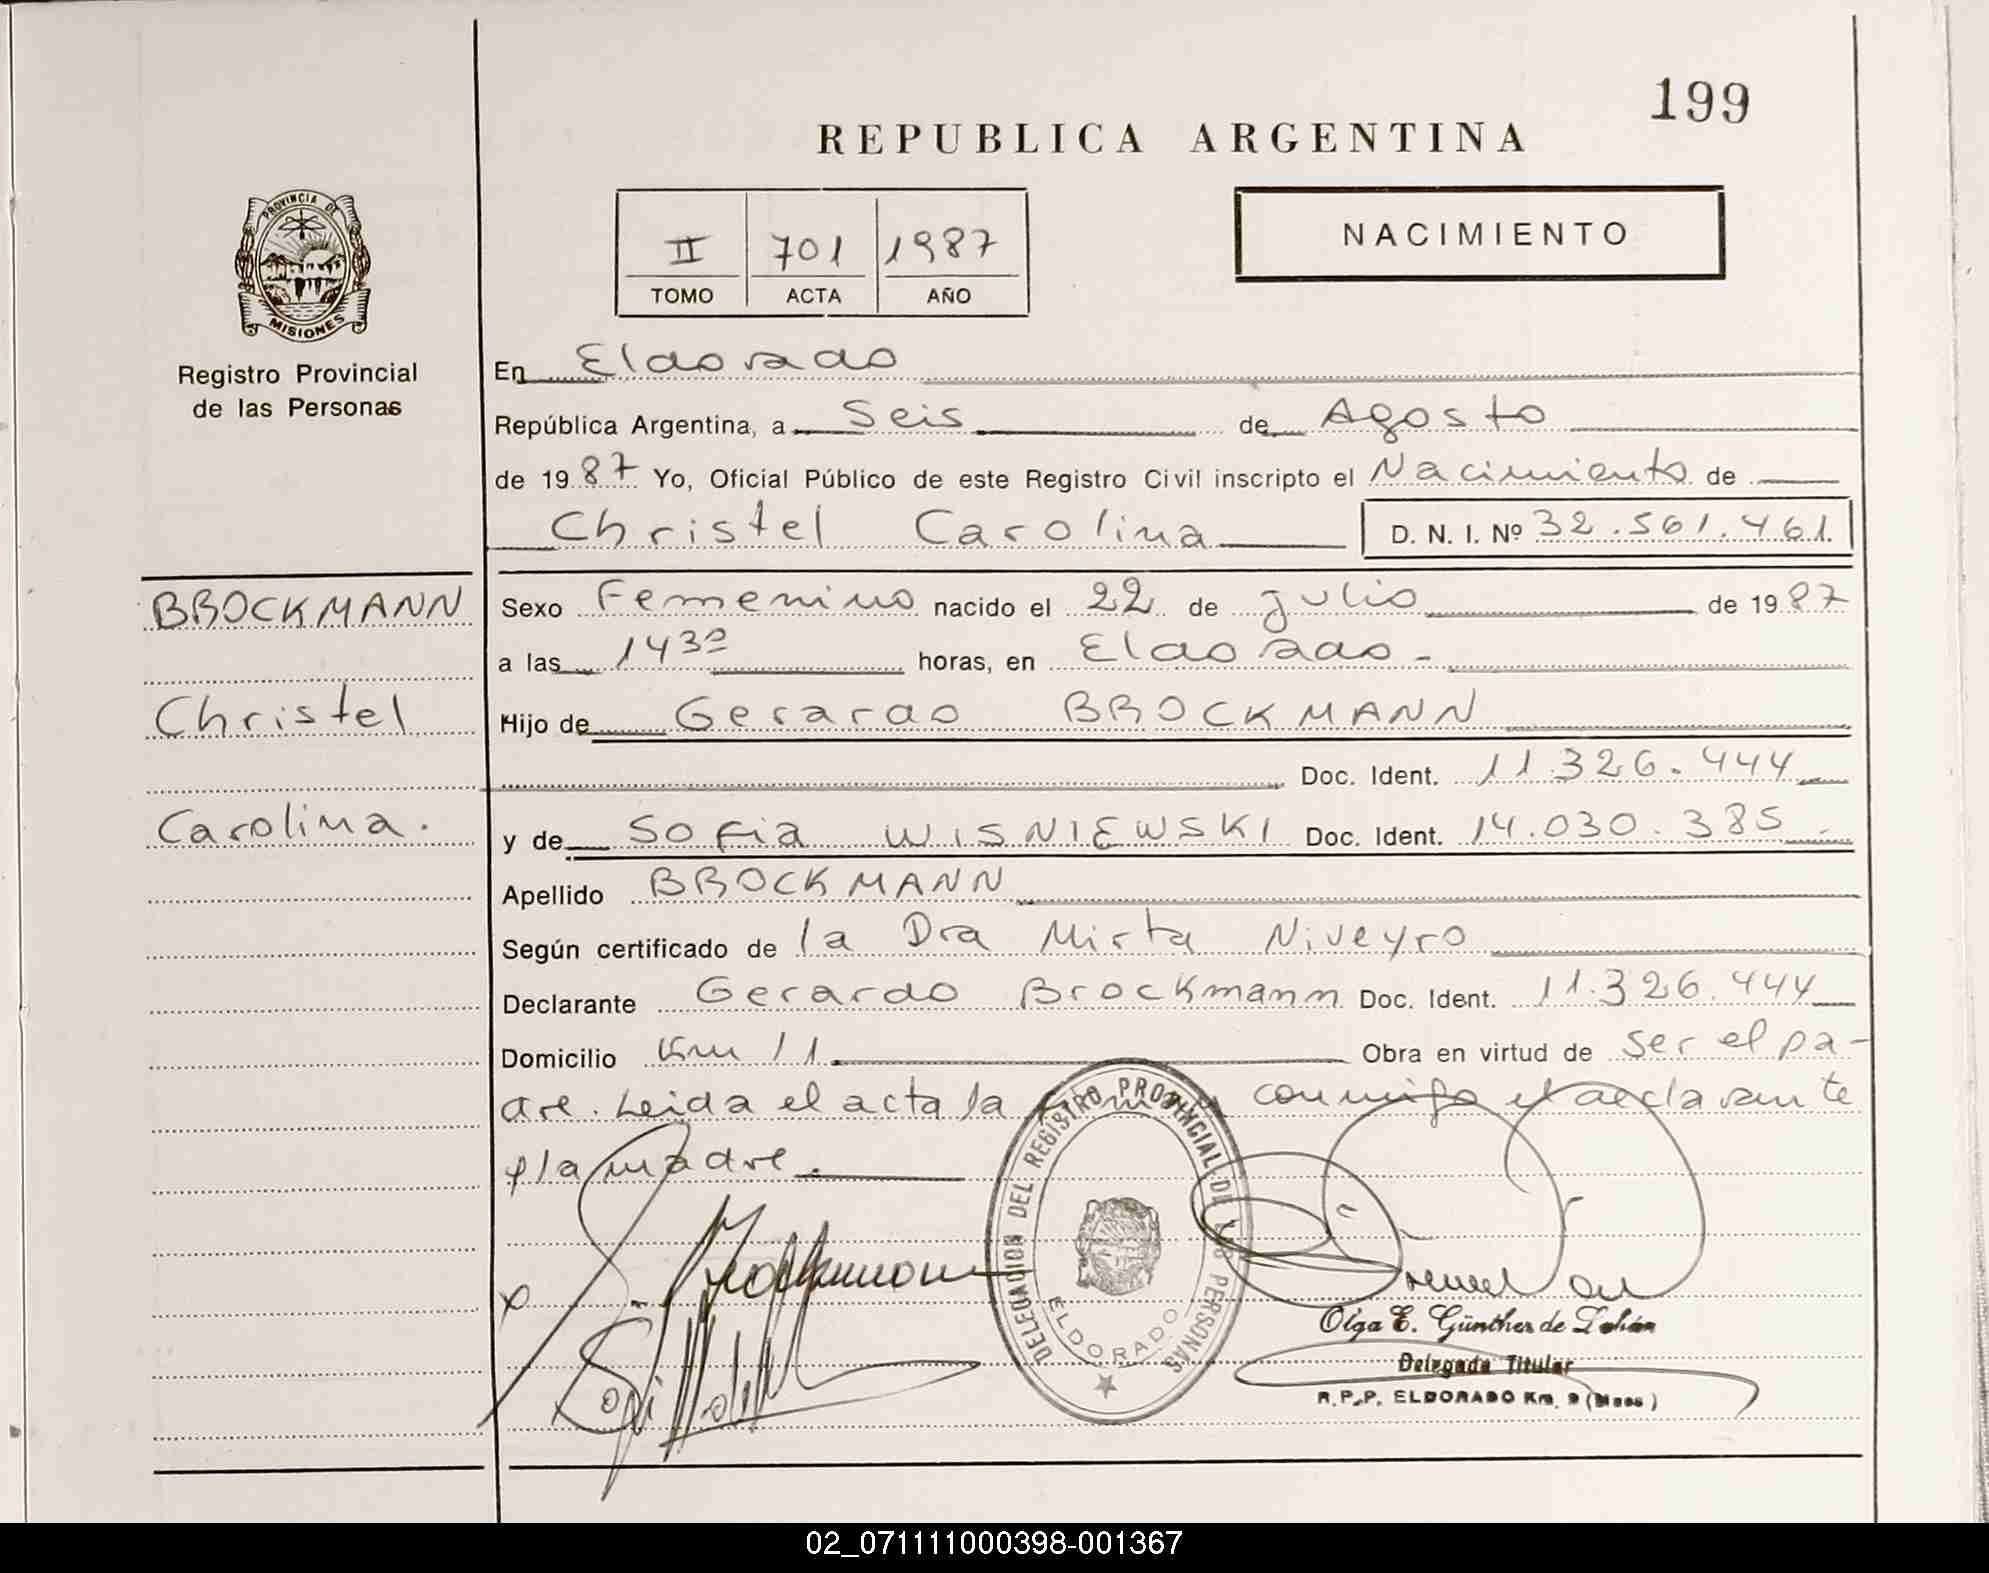 199
REPUBLICA ARGENTINA
PROVINCIA DE
MISIONES
Registro Provincial
de las Personas
II 701 1987
TOMO ACTA AÑO
NACIMIENTO
En Eldorado
República Argentina, a Seis de Agosto
de 1987 Yo, Oficial Público de este Registro Civil inscripto el Nacimiento de
Christel Carolina D. N. I. Nº 32.561.461.
BROCKMANN
Christel
Carolina.
Sexo Femenino nacido el 22 de julio de 1987
a las 14³⁰ horas, en Eldorado-
Hijo de Gerardo BROCKMANN
Doc. Ident. 11.326.444
y de Sofia WISNIEWSKI Doc. Ident. 14.030.385-
Apellido BROCKMANN
Según certificado de la Dra Mirta Niveyro
Declarante Gerardo Brockmann Doc. Ident. 11.326.444
Domicilio Km 11 Obra en virtud de ser el pa-
dre. Leida el acta la conmigo el declarante
y la madre.
DELEGACION DEL REGISTRO PROVINCIAL DE LAS PERSONAS
ELDORADO
Olga E. Günther de
Delegada Titular
R.P.P. ELDORADO Km. 9 (Mnes)
02_071111000398-001367